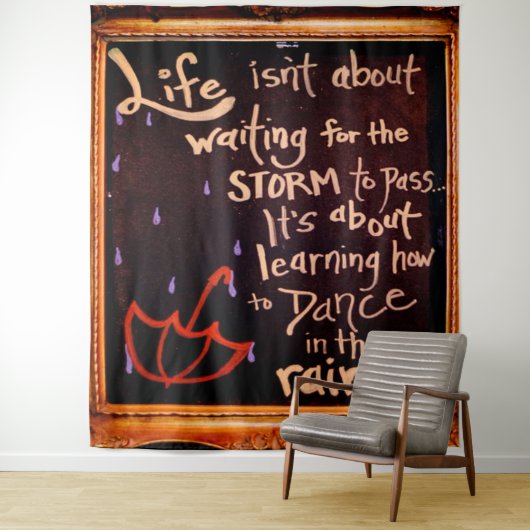 Life isn't about
waiting for the
STORM to pass...
It's about
learning how
to DANCE
in th
rain